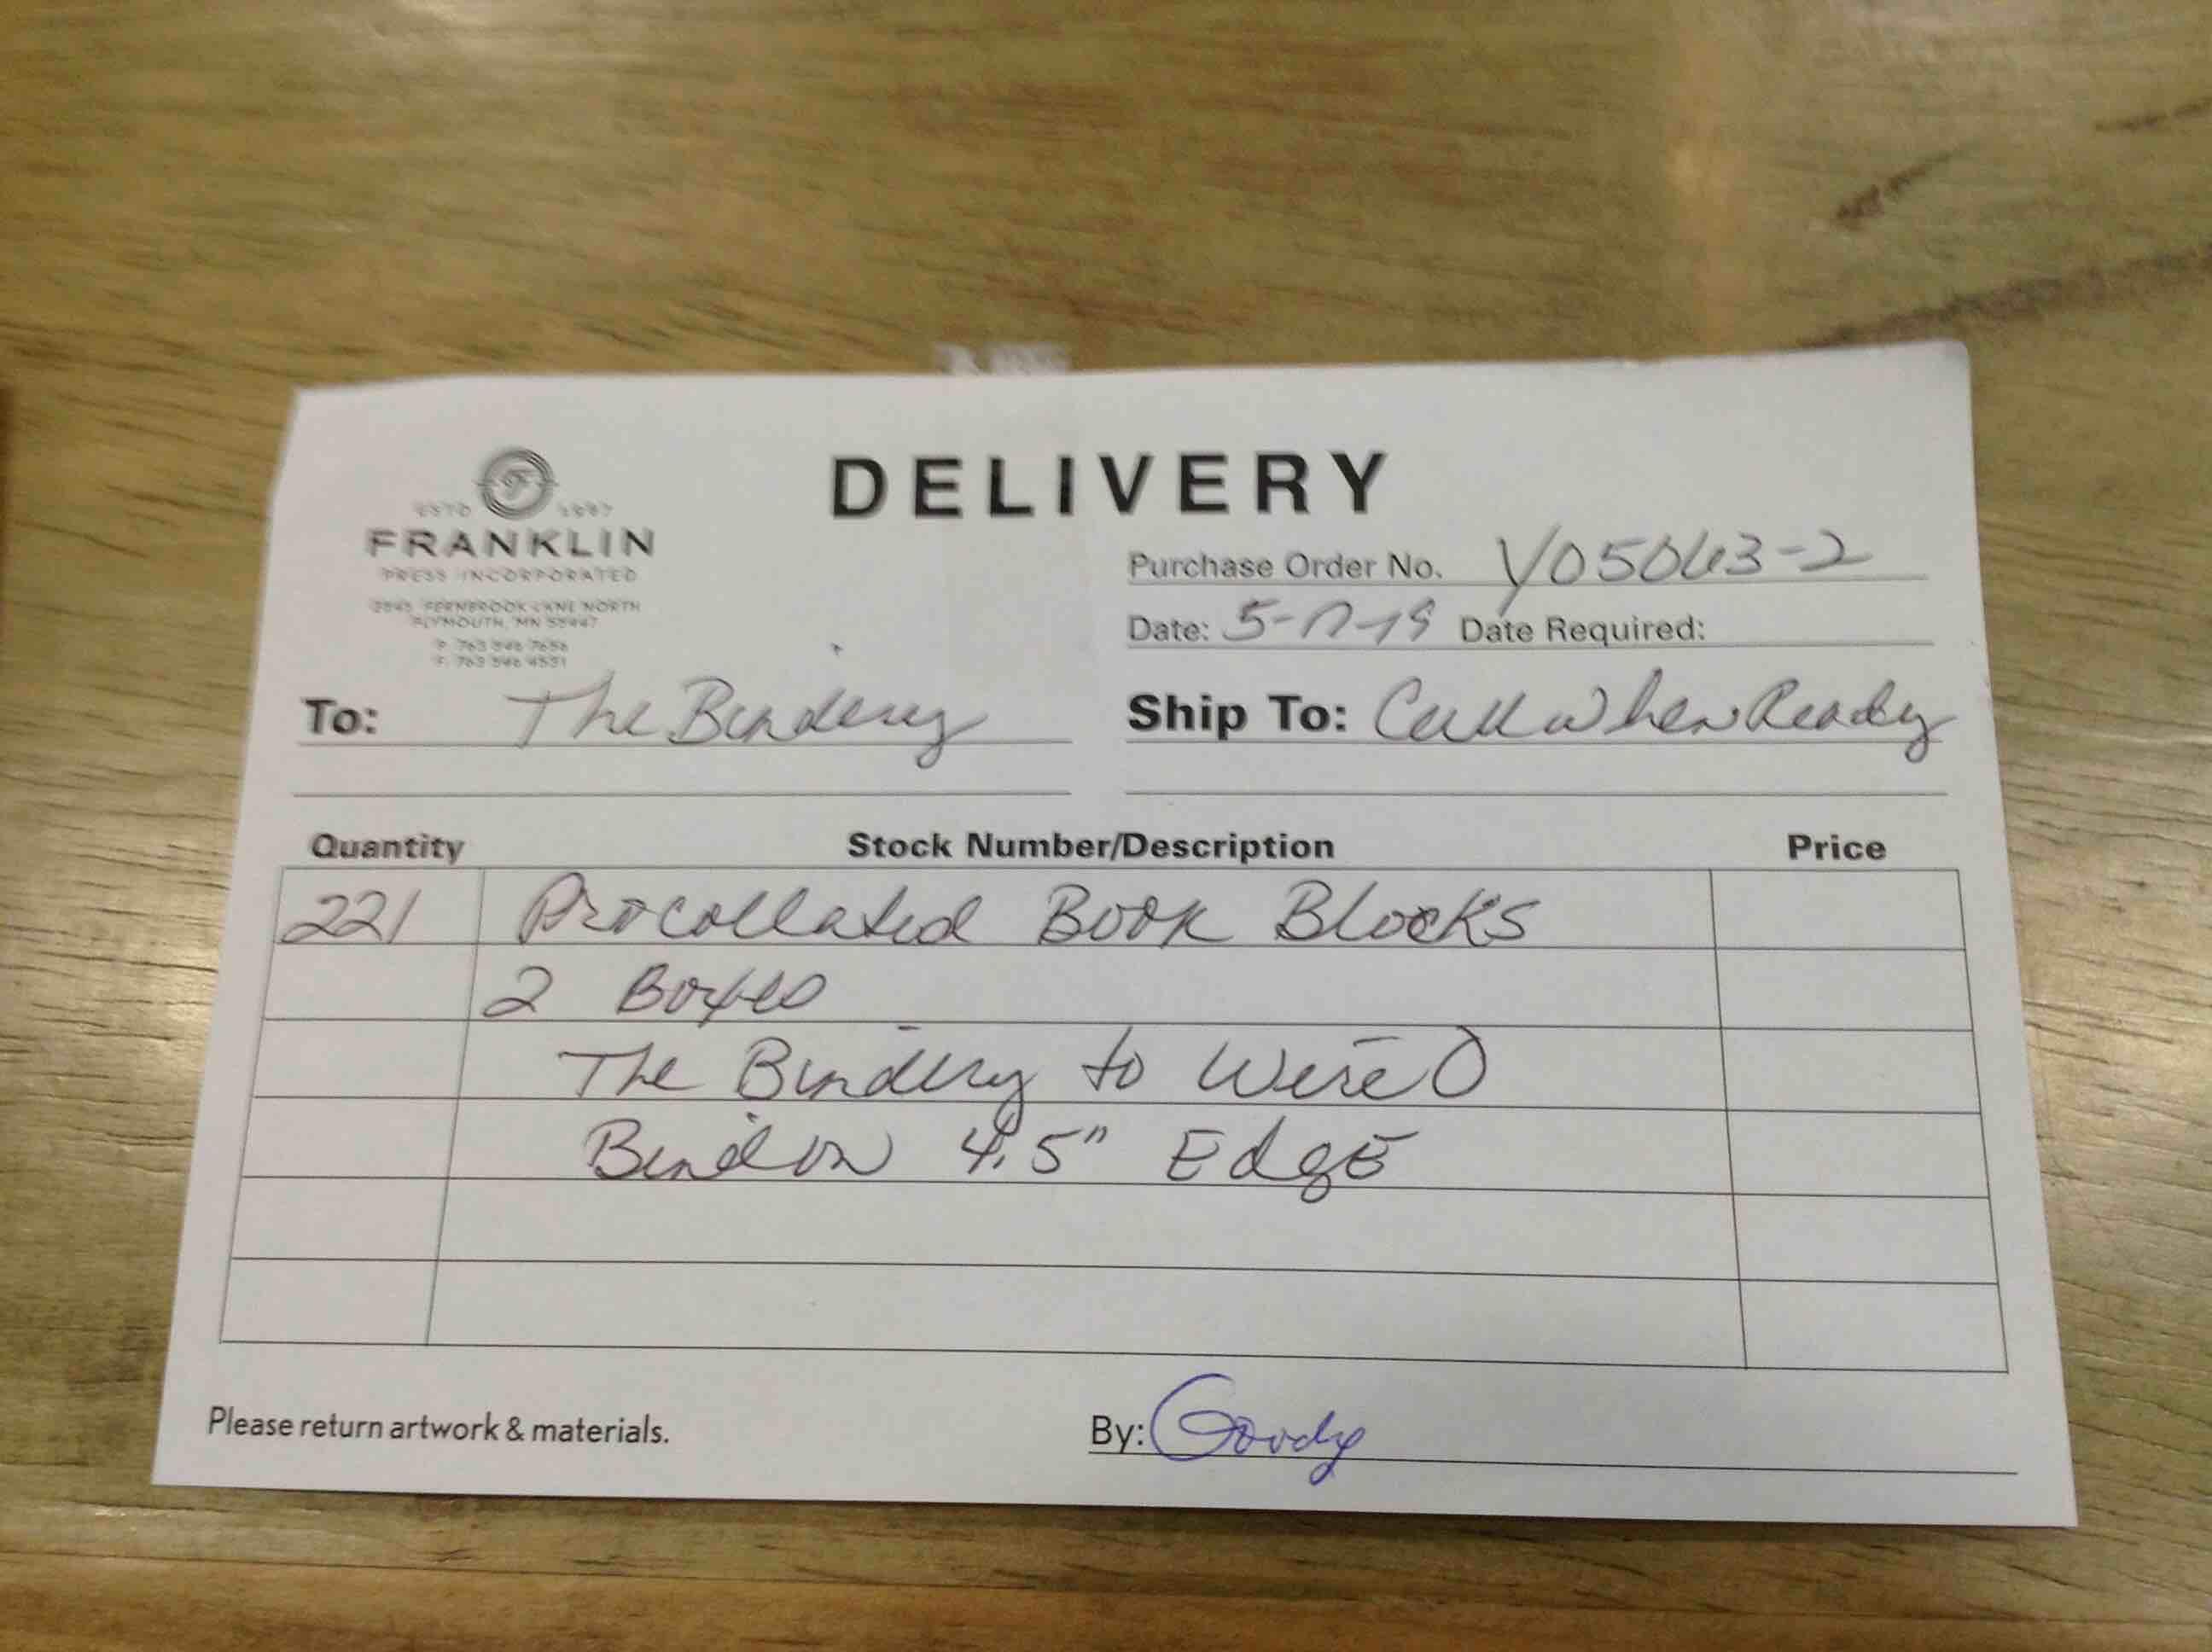 DELIVERY
ESTD
FRANKLIN
PRESS INCORPORATED
FERNBROOK LANE NORTH
PLYMOUTH, MN 55447
P. 763 546 7656
F. 763 546 4531
Purchase Order No. Y05063-2
Date: 5-17-19 Date Required:
To: The Bindery
Ship To: Call When Ready
Quantity Stock Number/Description Price
221 Procollated Book Blocks
2 Boxes
The Bindery to Wire O
Bind on 4.5" Edge
Please return artwork & materials.
By: Goody